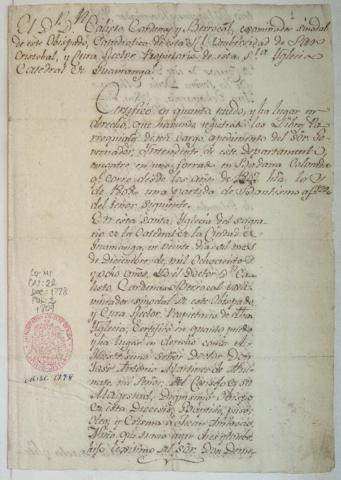 El D.r D.n Calisto Cardenas y Berrocal, examinador sinodal
de este Obispado, Catedratico de esta R.l Universidad de San
Cristobal, y Cura Rector Propietario de esta S.ta Yglesia
Catedral de Guamanga.
Certifico en quanto puedo, y ha lugar en
derecho, que haviendo registrado los Libros Par
roquiales de mi cargo
encontre en uno forrado en Badana colorada
q.e corre desde los años de hta. los
de una partida de Bautismo
del tenor siguiente.
En esta Santa Yglesia del Sagra
rio de la Catedral de la Ciudad de
Guamanga, en veinte dias del mes
de Diciembre, de mil ochocientos
y ocho años. Yo el Doctor D.n Ca
listo Cardenas y Berrocal exa
minador sinodal de este Obispado
y Cura Rector Propietario de dha
Yglesia, Certifico en quanto puedo
y ha lugar en derecho como el
Yllustrisimo Señor Doctor Don
Jose Antonio Martinez de Aldu
nate, mi Señor, del Consejo de su
Magestad, Dignisimo Obispo
en esta Diocesis, Bautizó, puso
Oleo y Crisma a Juan
Niño que nacio
hijo lexitimo del Sor. Don
Co-Mi
Caj: 22
Doc: 1778
Fol: 2
1809